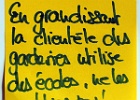 En grandissant
la clientèle des
garderies utilise
des écoles, we les